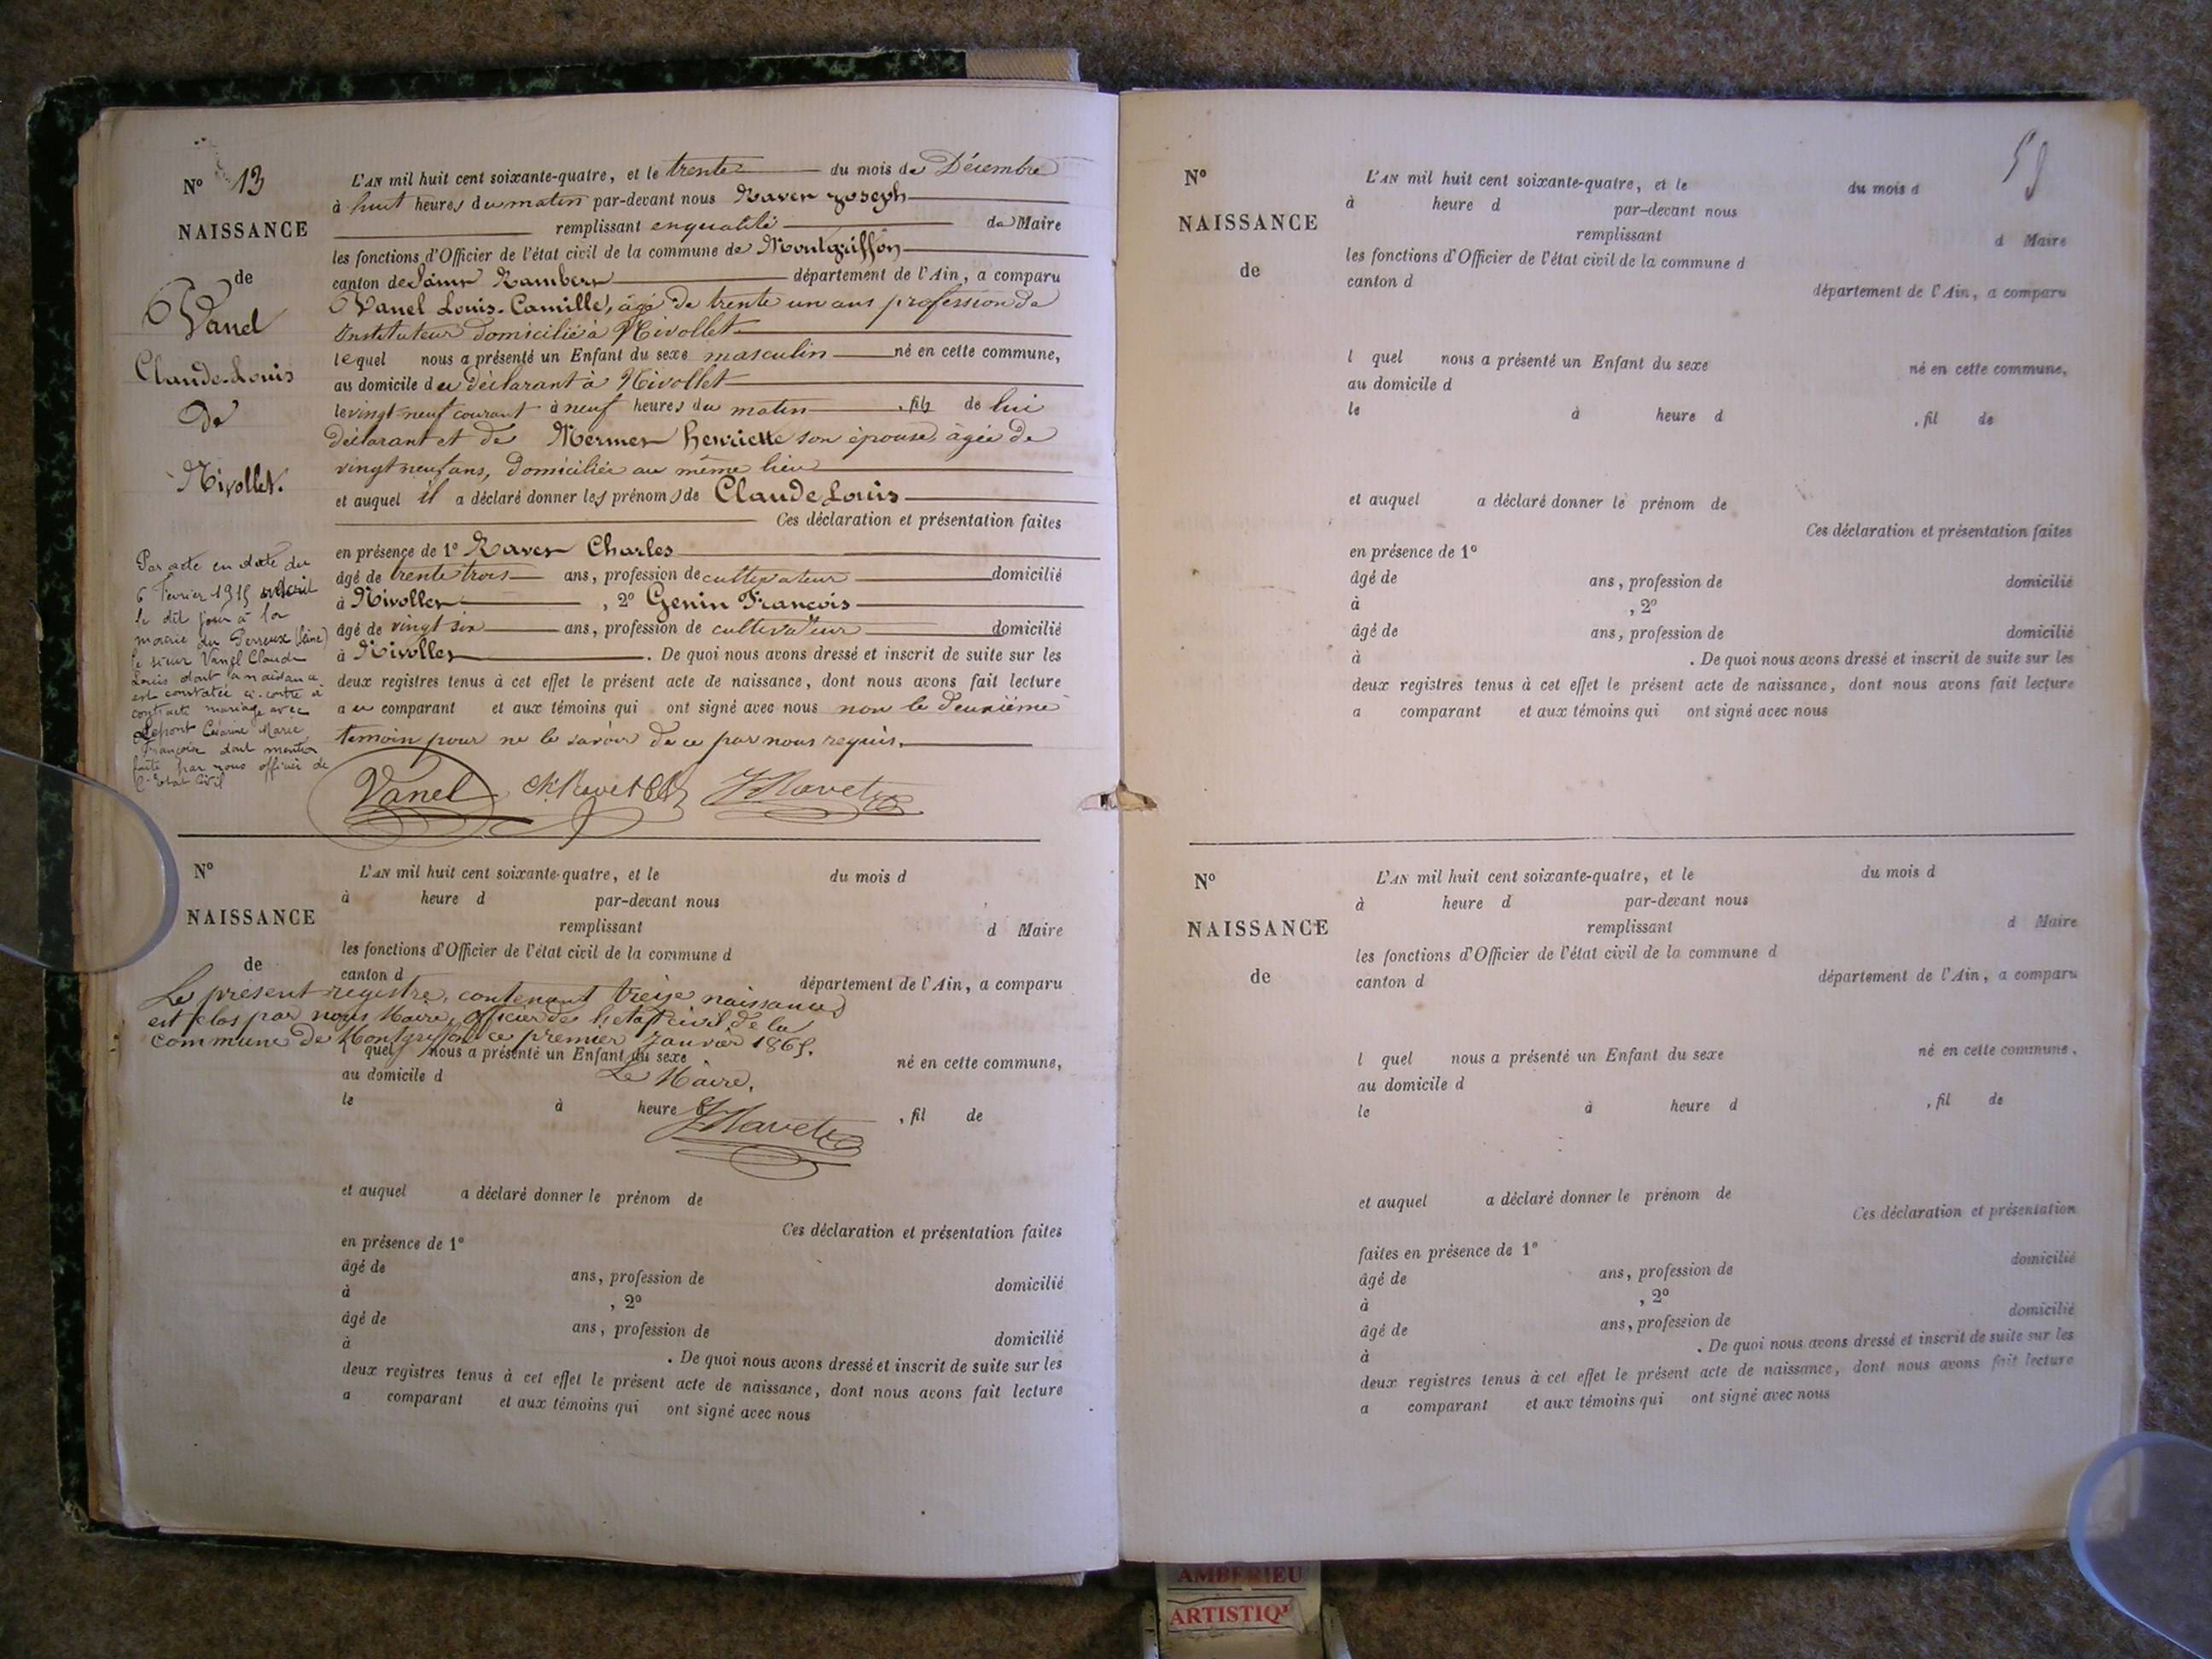 N° 13
NAISSANCE
de
Vanel
Claude-Louis
de
Nivollet.
L'AN mil huit cent soixante-quatre, et le trente du mois de Décembre
à huit heures du matin par-devant nous Ravet Joseph
remplissant en qualité de Maire
les fonctions d'Officier de l'état civil de la commune de Montgriffon
canton de Saint Rambert département de l'Ain, a comparu
Vanel Louis-Camille, âgé de trente un ans profession de
Instituteur domicilié à Nivollet
lequel nous a présenté un Enfant du sexe masculin né en cette commune,
au domicile du déclarant à Nivollet
le vingt neuf courant à neuf heures du matin, fils de lui
déclarant et de Mermet Henriette son épouse, âgée de
vingt neuf ans, domiciliée au même lieu
et auquel il a déclaré donner les prénoms de Claude Louis
Ces déclaration et présentation faites
en présence de 1° Ravet Charles
âgé de trente trois ans, profession de cultivateur domicilié
à Nivollet, 2° Genin François
âgé de vingt six ans, profession de cultivateur domicilié
à Nivollet. De quoi nous avons dressé et inscrit de suite sur les
deux registres tenus à cet effet le présent acte de naissance, dont nous avons fait lecture
au comparant et aux témoins qui ont signé avec nous non le deuxième
temoin pour ne le savoir de ce par nous requis.
Par acte en date du
6 Février 1915
le dit jour à la
mairie du Perreux (Seine)
le sieur Vanel Claude
Louis dont la naissance
est constatée ci-contre a
contracté mariage avec
Césarine Marie
Françoise dont mention
faite par nous officier de
l'Etat Civil
Vanel Ch Ravet J Ravet
N°
NAISSANCE
de
L'AN mil huit cent soixante-quatre, et le du mois d
à heure d par-devant nous
remplissant d Maire
les fonctions d'Officier de l'état civil de la commune d
canton d département de l'Ain, a comparu
Le présent registre, contenant treize naissances
est clos par nous Maire, officier de l'etat civil de la
commune de Montgriffon ce premier Janvier 1865.
l quel nous a présenté un Enfant du sexe né en cette commune,
au domicile d
Le Maire,
le à heure d, fil de
J Ravet
et auquel a déclaré donner le prénom de
Ces déclaration et présentation faites
en présence de 1°
âgé de ans, profession de domicilié
à , 2°
âgé de ans, profession de domicilié
à . De quoi nous avons dressé et inscrit de suite sur les
deux registres tenus à cet effet le présent acte de naissance, dont nous avons fait lecture
a comparant et aux témoins qui ont signé avec nous
N°
NAISSANCE
de
L'AN mil huit cent soixante-quatre, et le du mois d
à heure d par-devant nous
remplissant d Maire
les fonctions d'Officier de l'état civil de la commune d
canton d département de l'Ain, a comparu
l quel nous a présenté un Enfant du sexe né en cette commune,
au domicile d
le à heure d , fil de
et auquel a déclaré donner le prénom de
Ces déclaration et présentation faites
en présence de 1°
âgé de ans, profession de domicilié
à , 2°
âgé de ans, profession de domicilié
à . De quoi nous avons dressé et inscrit de suite sur les
deux registres tenus à cet effet le présent acte de naissance, dont nous avons fait lecture
a comparant et aux témoins qui ont signé avec nous
N°
NAISSANCE
de
L'AN mil huit cent soixante-quatre, et le du mois d
à heure d par-devant nous
remplissant d Maire
les fonctions d'Officier de l'état civil de la commune d
canton d département de l'Ain, a comparu
l quel nous a présenté un Enfant du sexe né en cette commune,
au domicile d
le à heure d , fil de
et auquel a déclaré donner le prénom de
Ces déclaration et présentation
faites en présence de 1°
âgé de ans, profession de domicilié
à , 2°
âgé de ans, profession de domicilié
à . De quoi nous avons dressé et inscrit de suite sur les
deux registres tenus à cet effet le présent acte de naissance, dont nous avons fait lecture
a comparant et aux témoins qui ont signé avec nous
AMBERIEU
ARTISTIQ